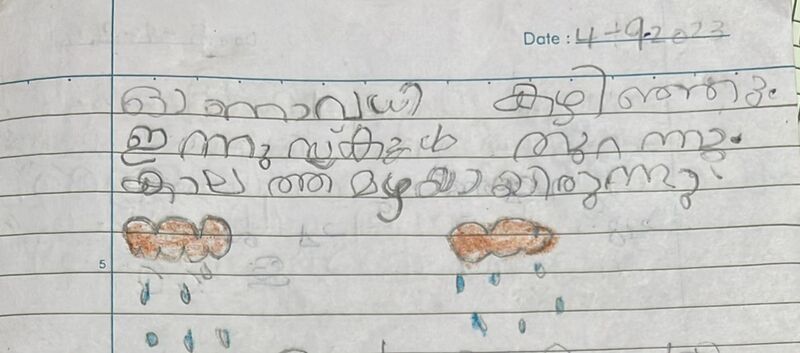 Date : 4-9-2023
ഓണാവധി കഴിഞ്ഞു.
ഇന്നു സ്കൂൾ തുറന്നു.
കാലത്ത് മഴയായിരുന്നു.
5